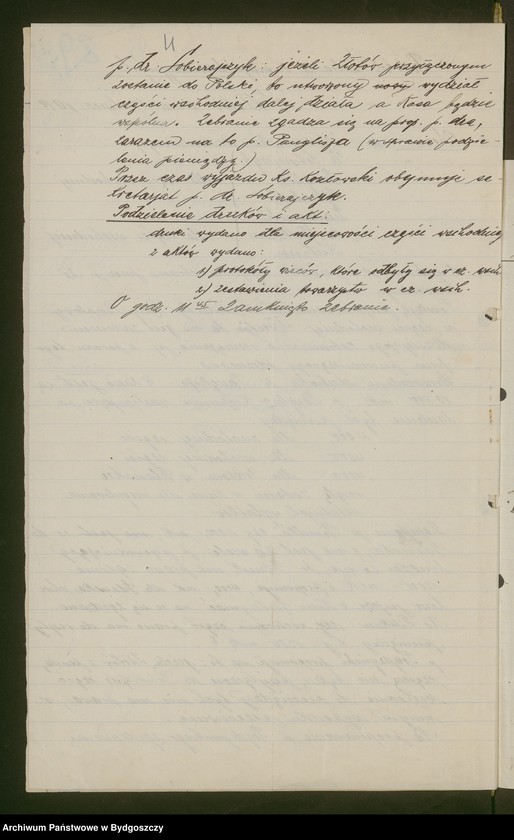 4
p. dr. Sobierajczyk: jeżeli Złotów przyłączonym
zostanie do Polski, to utworzony nowy wydział
części wschodniej dalej działa a Kasa będzie
wspólna. Zebranie zgadza się na prop. p. dra,
zarazem na to p. (w sprawie podzie-
lenia pieniędzy.)
Przez czas wyjazdu Ks. Kozłowski obejmuje se-
kretarjat p. dr. Sobierajczyk.
Podzielenie druków i akt:
druki wydano dla miejscowości części wschodniej
z aktów wydano:
1) protokóły wieców, które odbyły się w cz. wsch.
2) zestawienia towarzystw w cz. wsch.
O godz. 11 zamknięto zebranie.
Archiwum Państwowe w Bydgoszczy